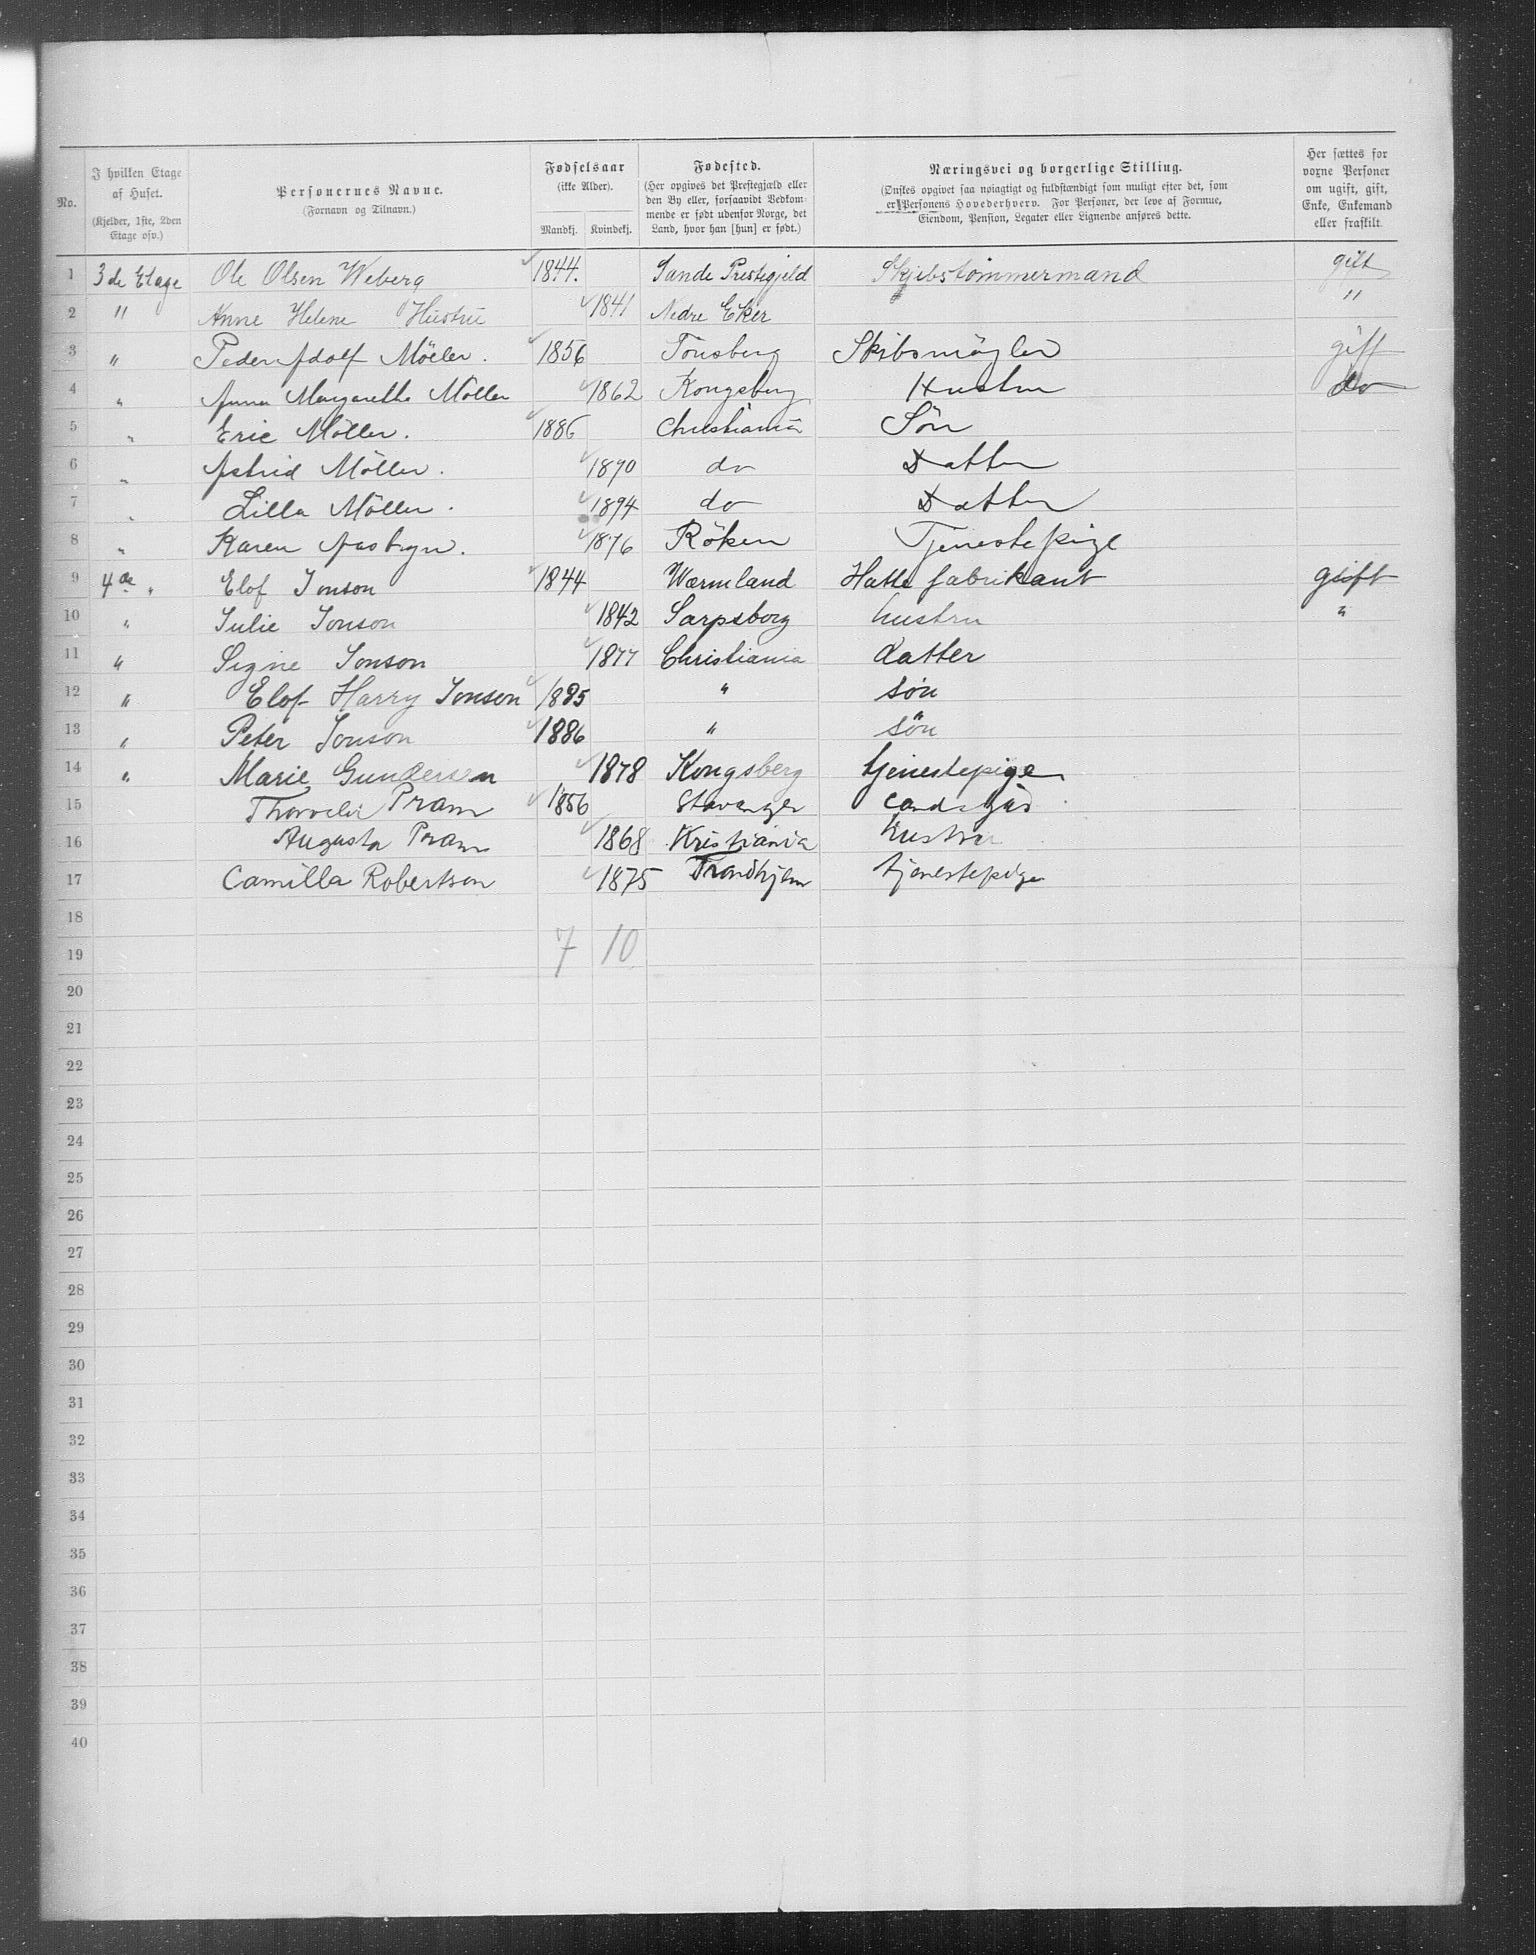 No. | I hvilken Etage af Huset. (Kjelder, 1ste, 2den Etage osv.) | Personernes Navne. (Fornavn og Tilnavn.) | Fødselsaar (ikke Alder). Mandkj. Kvindekj. | Fødested. (Her opgives det Prestegjæld eller den By eller, forsaavidt Vedkommende er født udenfor Norge, det Land, hvor han [hun] er født.) | Næringsvei og borgerlige Stilling. (Ønskes opgivet saa nøiagtigt og fuldstændigt som muligt efter det, som er Personens Hovederhverv. For Personer, der leve af Formue, Eiendom, Pension, Legater eller Lignende anføres dette. | Her sættes for vorne Personer om ugift, gift, Enke, Enkemand eller fraskilt.
1 3de Etage Ole Olsen Weberg 1844. Sande Prestegjeld Skjibstømmermand gift
2 " Anne Helene Hustru 1841 Nedre Eker "
3 " Peder Adolf Möller. 1856 Tönsberg Skibsmægler gift
4 " Anna Margarethe Möller 1862 Kongsberg Hustru do
5 " Eric Möller. 1886 Christiania Sön
6 " Astrid Möller. 1890 do Datter
7 " Lilla Möller. 1894 do Datter
8 " Karen 1876 Röken Tjenestepige
9 4de " Elof Jonson 1844 Wærmland Hatte fabrikant gift
10 " Julie Jonson 1842 Sarpsborg hustru "
11 " Signe Jonson 1877 Christiania datter
12 " Elof Harry Jonson 1885 " søn
13 " Peter Jonson 1886 " søn
14 " Marie Gundersen 1878 Kongsberg tjenestepige
15 Pram 1856 Stavanger
16 Augusta Pram 1868 Kristiania hustru
17 Camilla Robertson 1875 Trondhjem tjenestepige
18
19 7 10
20
21
22
23
24
25
26
27
28
29
30
31
32
33
34
35
36
37
38
39
40